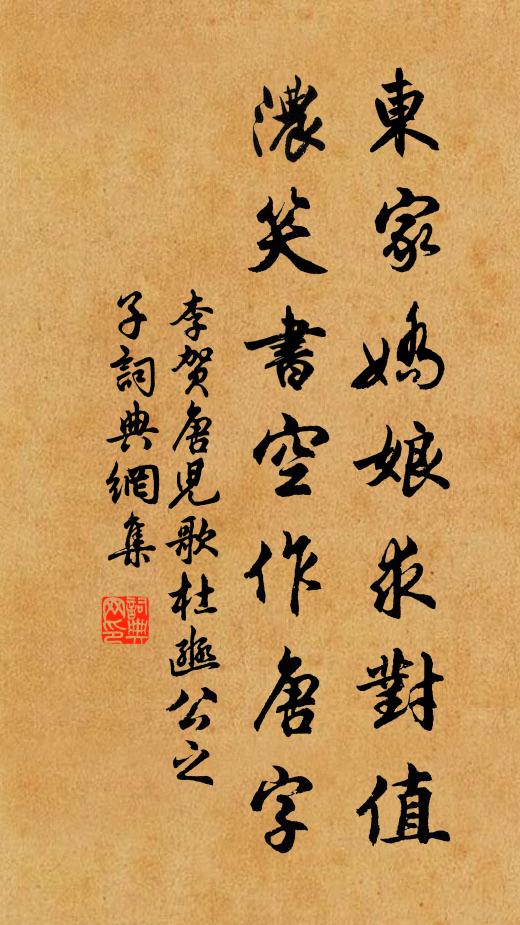 東家嬌娘求對值
濃笑書空作唐字
李賀唐兒歌杜豳公之
子詞典網集
詞典
网印